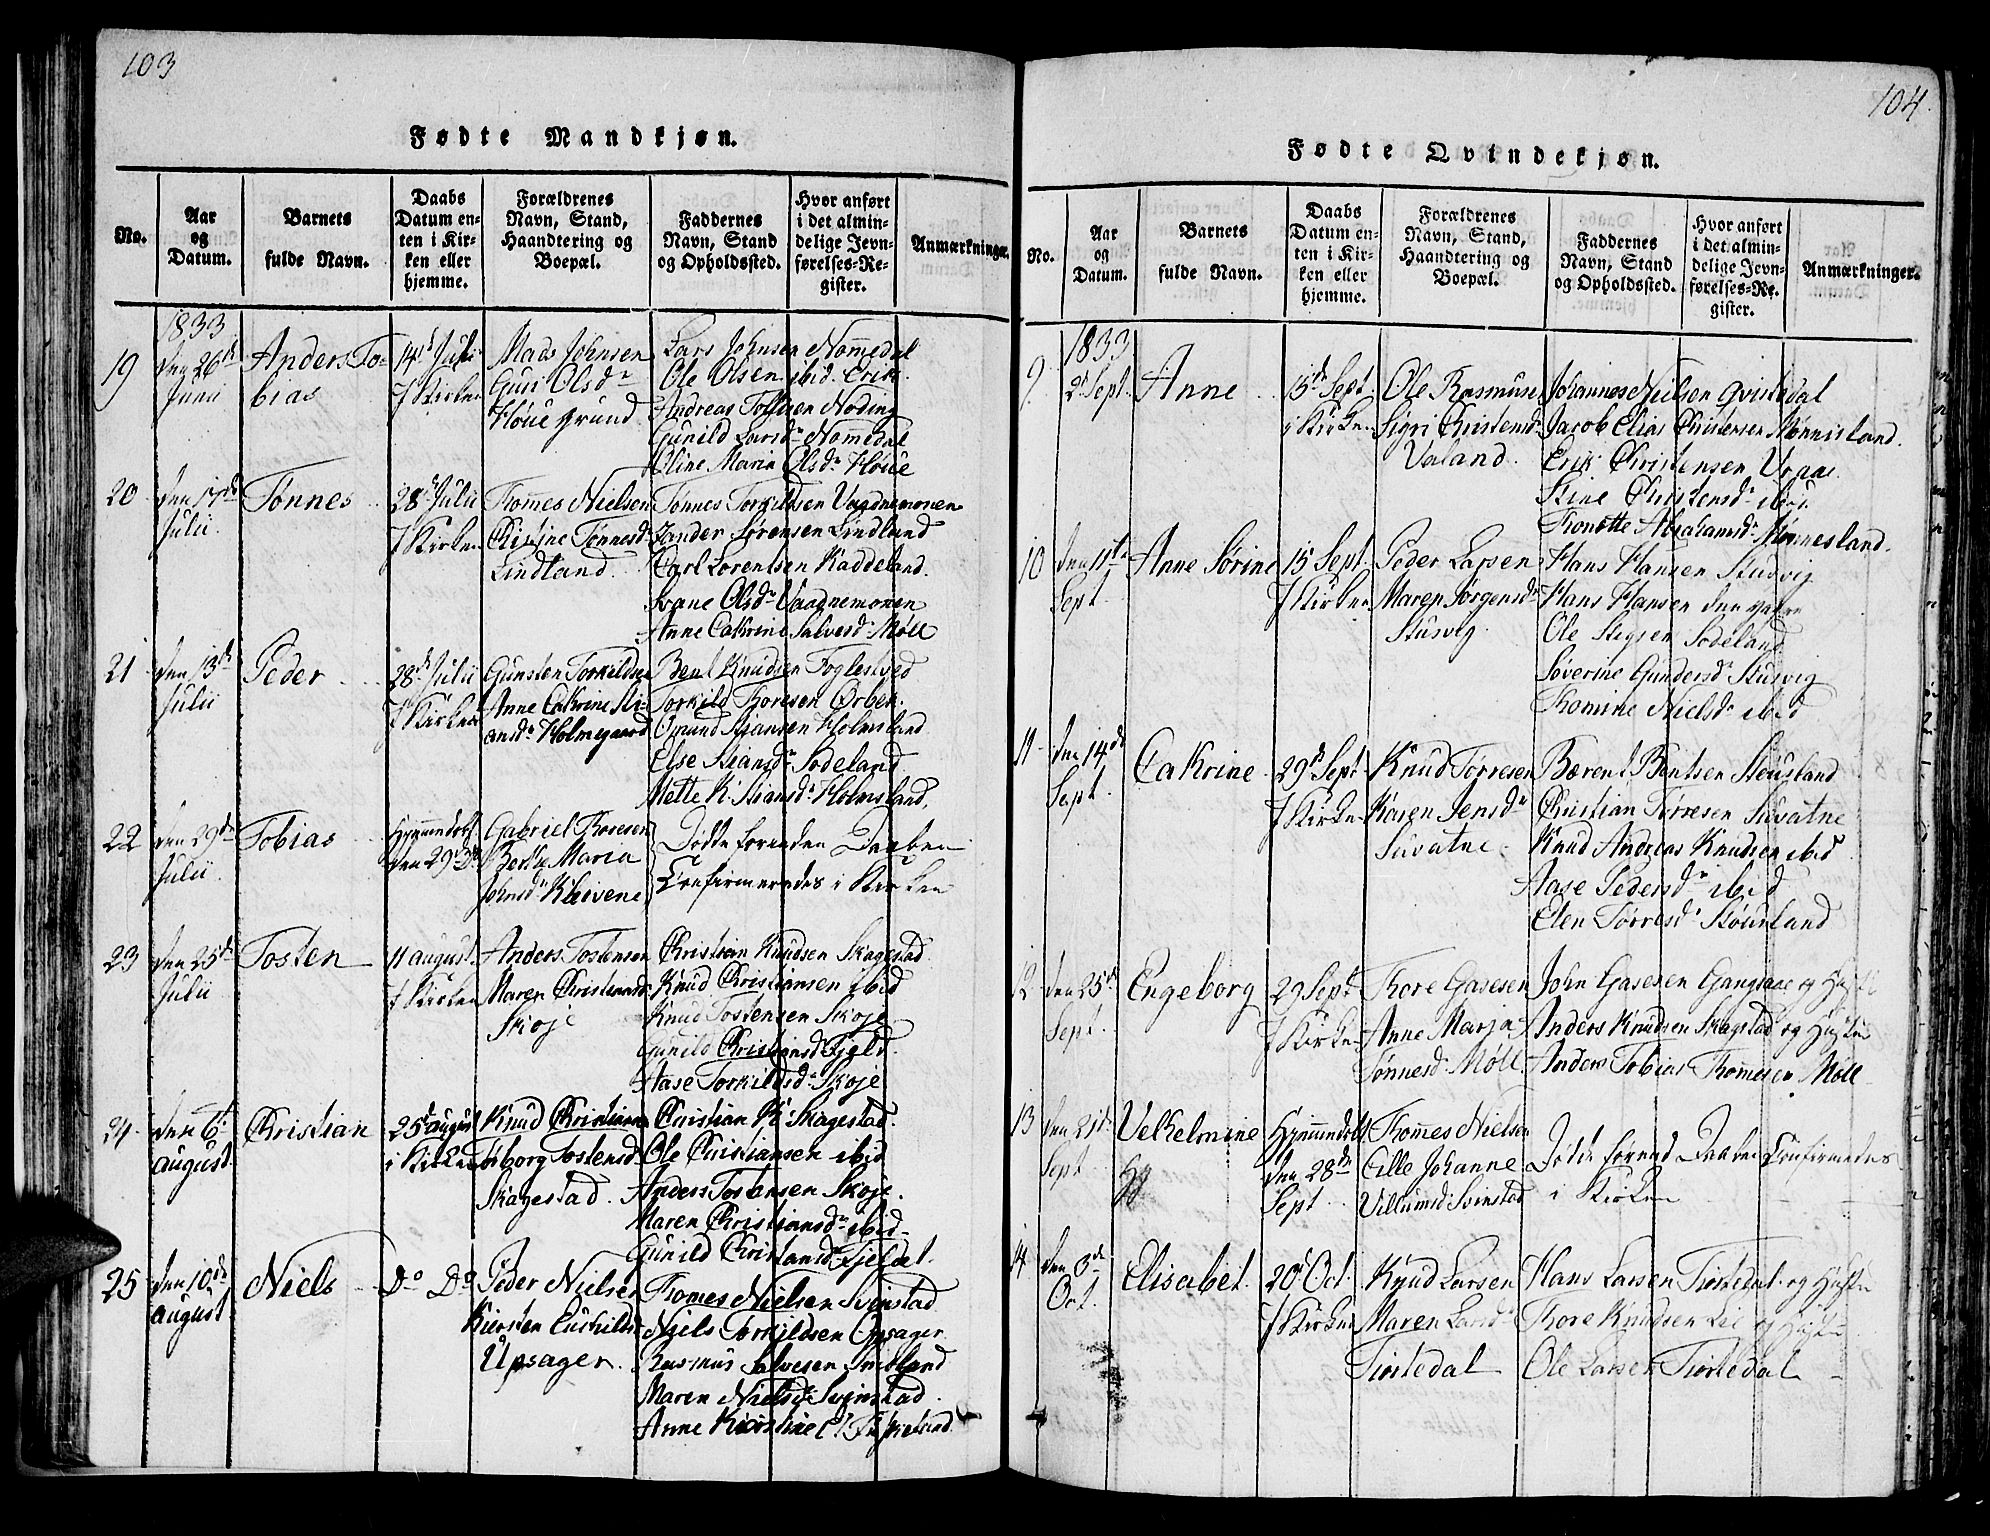 103
Fødte Mandkjøn.
No.
Aar
og
Datum.
Barnets
fulde Navn.
Daabs
Datum en-
ten i Kir-
ken eller
hjemme.
Forældrenes
Navn, Stand,
Haandtering og
Boepæl.
Faddernes
Navn, Stand
og Opholdssted.
Hvor anført
i det almin-
delige Jevn-
førelses-Re-
gister.
Anmærkninger.
1833
19
den 26de
Junii
Anders To-
bias
14de Julii
I Kirken
Mads Johnsen
Guri Olsdr
Høue grund
Lars Johnsen Nomedal
Ole Olsen ibid. Erik
Andreas Nøding
Gunild Larsdr Nomedal
Oline Maria Olsdr Høue
20
Julii
Tønnes
28de Julii
I Kirken
Thomes Nielsen
Christine Tønnesdr
Lindland
Tønnes Torkildsen Vaagnemonen
Zander Sørensen Lindland
Carl Lorentsen Kaddeland.
Svane Olsdr Vaagnemonen
Anne Cathrine Salvesdr Møll
21
den 13de
Julii
Peder
28de Julii
I Kirken
Gunsten Torkildsen
Anne Cathrine Sti-
ansdr Holmegaard
Bent Knudsen Foglestved
Torkild Thoresen Orbek.
Omund Stiansen Holmsland
Else Stiansdr Sodeland
Mette K. Stiansdr Holmsland,
22
den 29de
Julii
Tobias
Hjemmedøbt
den 29de
Gabriel Thoresen
Berthe Maria
Johnsdr Kleivene
Døde forinden Daaben
Confirmeredes i Kirken
23
den 25de
Julii
Tosten
11 august
I Kirken
Anders Tostensen
Maren Christiansdr
Skoje
Christian Knudsen Skagestad
Knud Christiansen ibid
Knud Tostensen Skoje
Gunild Christiansdr Fjeld.
Aase Torkildsdr Skoje
24
den 6te
august
Christian
25de august
i Kirken
Knud Christiansen
Torborg Tostensdr
Skagestad.
Christian K. Skagestad.
Ole Christiansen ibid
Anders Tostensen Skoje.
Maren Christiansdr ibid
Gunild Christiansdr Fjeldt.
25
den 10de
august
Niels
Do Do
Peder Nielsen
Kiersten
Upsager.
Thomes Nielsen Svinstad
Niels Torkildsen Opsager
Rasmus Salvesen
Maren Nielsdr Svinstad.
Anne Kirstine
104
Fødte Qvindekjøn.
No.
Aar
og
Datum.
Barnets
fulde Navn.
Daabs
Datum en-
ten i Kir-
ken eller
hjemme.
Forældrenes
Navn, Stand,
Haandtering og
Boepæl.
Faddernes
Navn, Stand
og Opholdssted.
Hvor anført
i det almin-
delige Jevn-
førelses-Re-
gister.
Anmærkninger.
1833
9
2d Sept.
Anne
15de Sept.
i Kirken
Ole Rasmusen
Sigri Christensdr
Valand.
Johannes Nielsen Qvistedal
Jacob Elias Christensen Mønnisland.
Erik Christensen Vraa.
Stine Christensdr ibid.
Thonette Abrahamsdr Mønnesland.
10
den 11te
Sept
Anne Sørine
15 Sept.
I Kirken
Peder Larsen
Maren Jørgensdr
Stusvig.
Hans Hansen Stusvig
Hans Hansen den yngre
Ole Stegsen Sodeland
Severine Gundersdr Stusvig
Thomine Nielsdr ibid
11
den 14de
Sept
Cathrine
29de Sept
I Kirken
Knud Torresen
Karen Jensdr
Suvatne.
Bærent Bentsen Stousland
Christian Tørresen Suvatne
Knud Andreas Knudsen ibid
Aase Pedersdr ibid
Elen Torresdr Støusland
12
den 25de
Sept.
Engeborg
29 Sept
I Kirken
Thore Gasesen
Anne Marja
Tønnesdr Møll
John Gasesen Gangsaae og Hustru
Anders Knudsen Skagstad og Hustru
Anders Tobias Thomesen Møll
13
den 21de
Sept
Velhelmine
Hjemmedøbt
den 28de
Sept
Thomes Nielsen
Cille Johanne
Villumsdr Svinstad
Døde forend Daaben Confirmedes
i Kirken
14
den 3de
Oct.
Elisabet.
20de Oct.
I Kirken
Knud Larsen
Maren Larsdr
Tiostedal
Hans Larsen Tiostedal og Hustru
Thore Knudsen Lie og Hustru
Ole Larsen Tiostedal